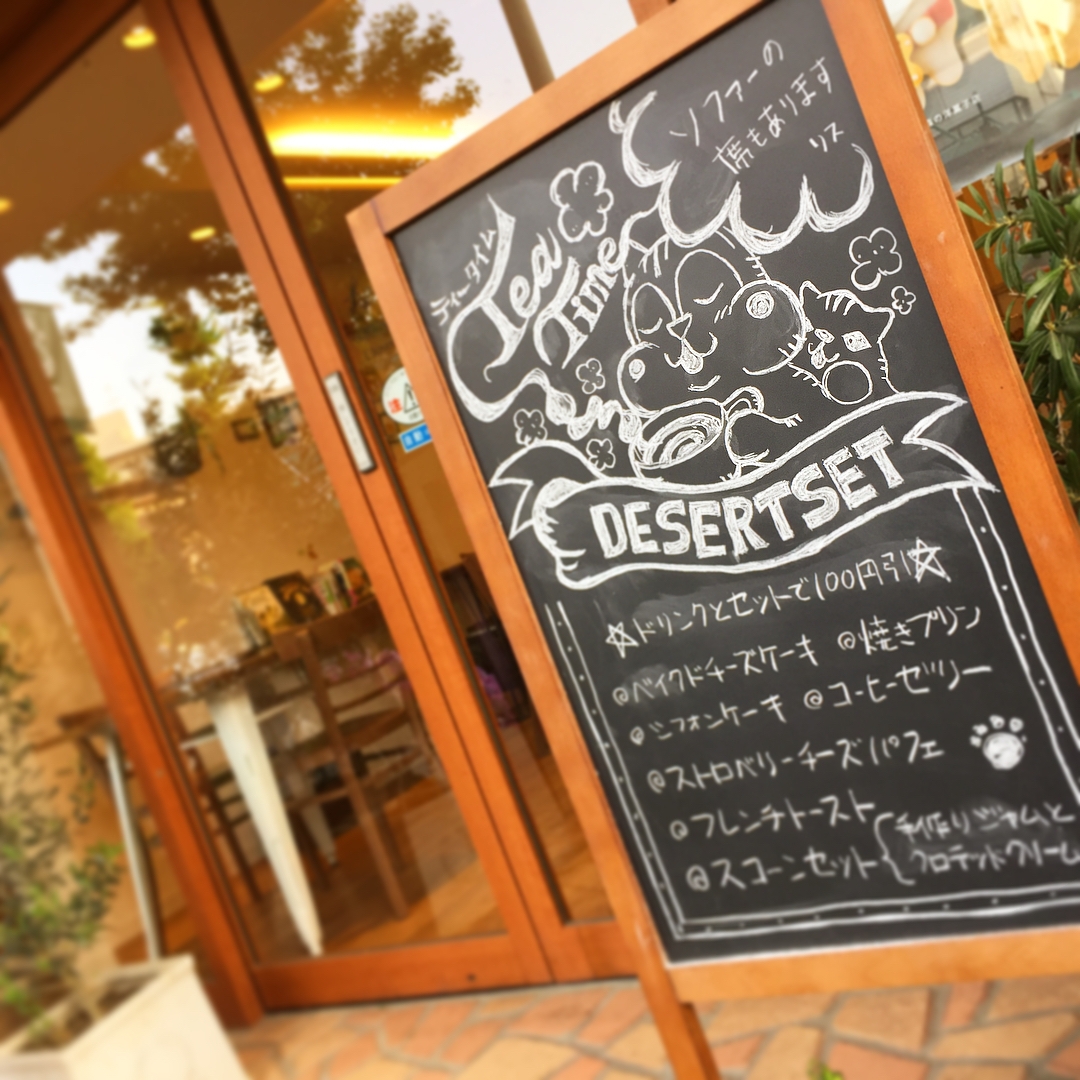 ソファーの
席もあります
リス
ティータイム
Tea
Time
DESERTSET
☆ドリンクとセットで100円引☆
@ベイクドチーズケーキ @焼きプリン
@シフォンケーキ @コーヒーゼリー
@ストロベリーチーズパフェ
@フレンチトースト
@スコーンセット{手作りジャムと
クロテッドクリーム